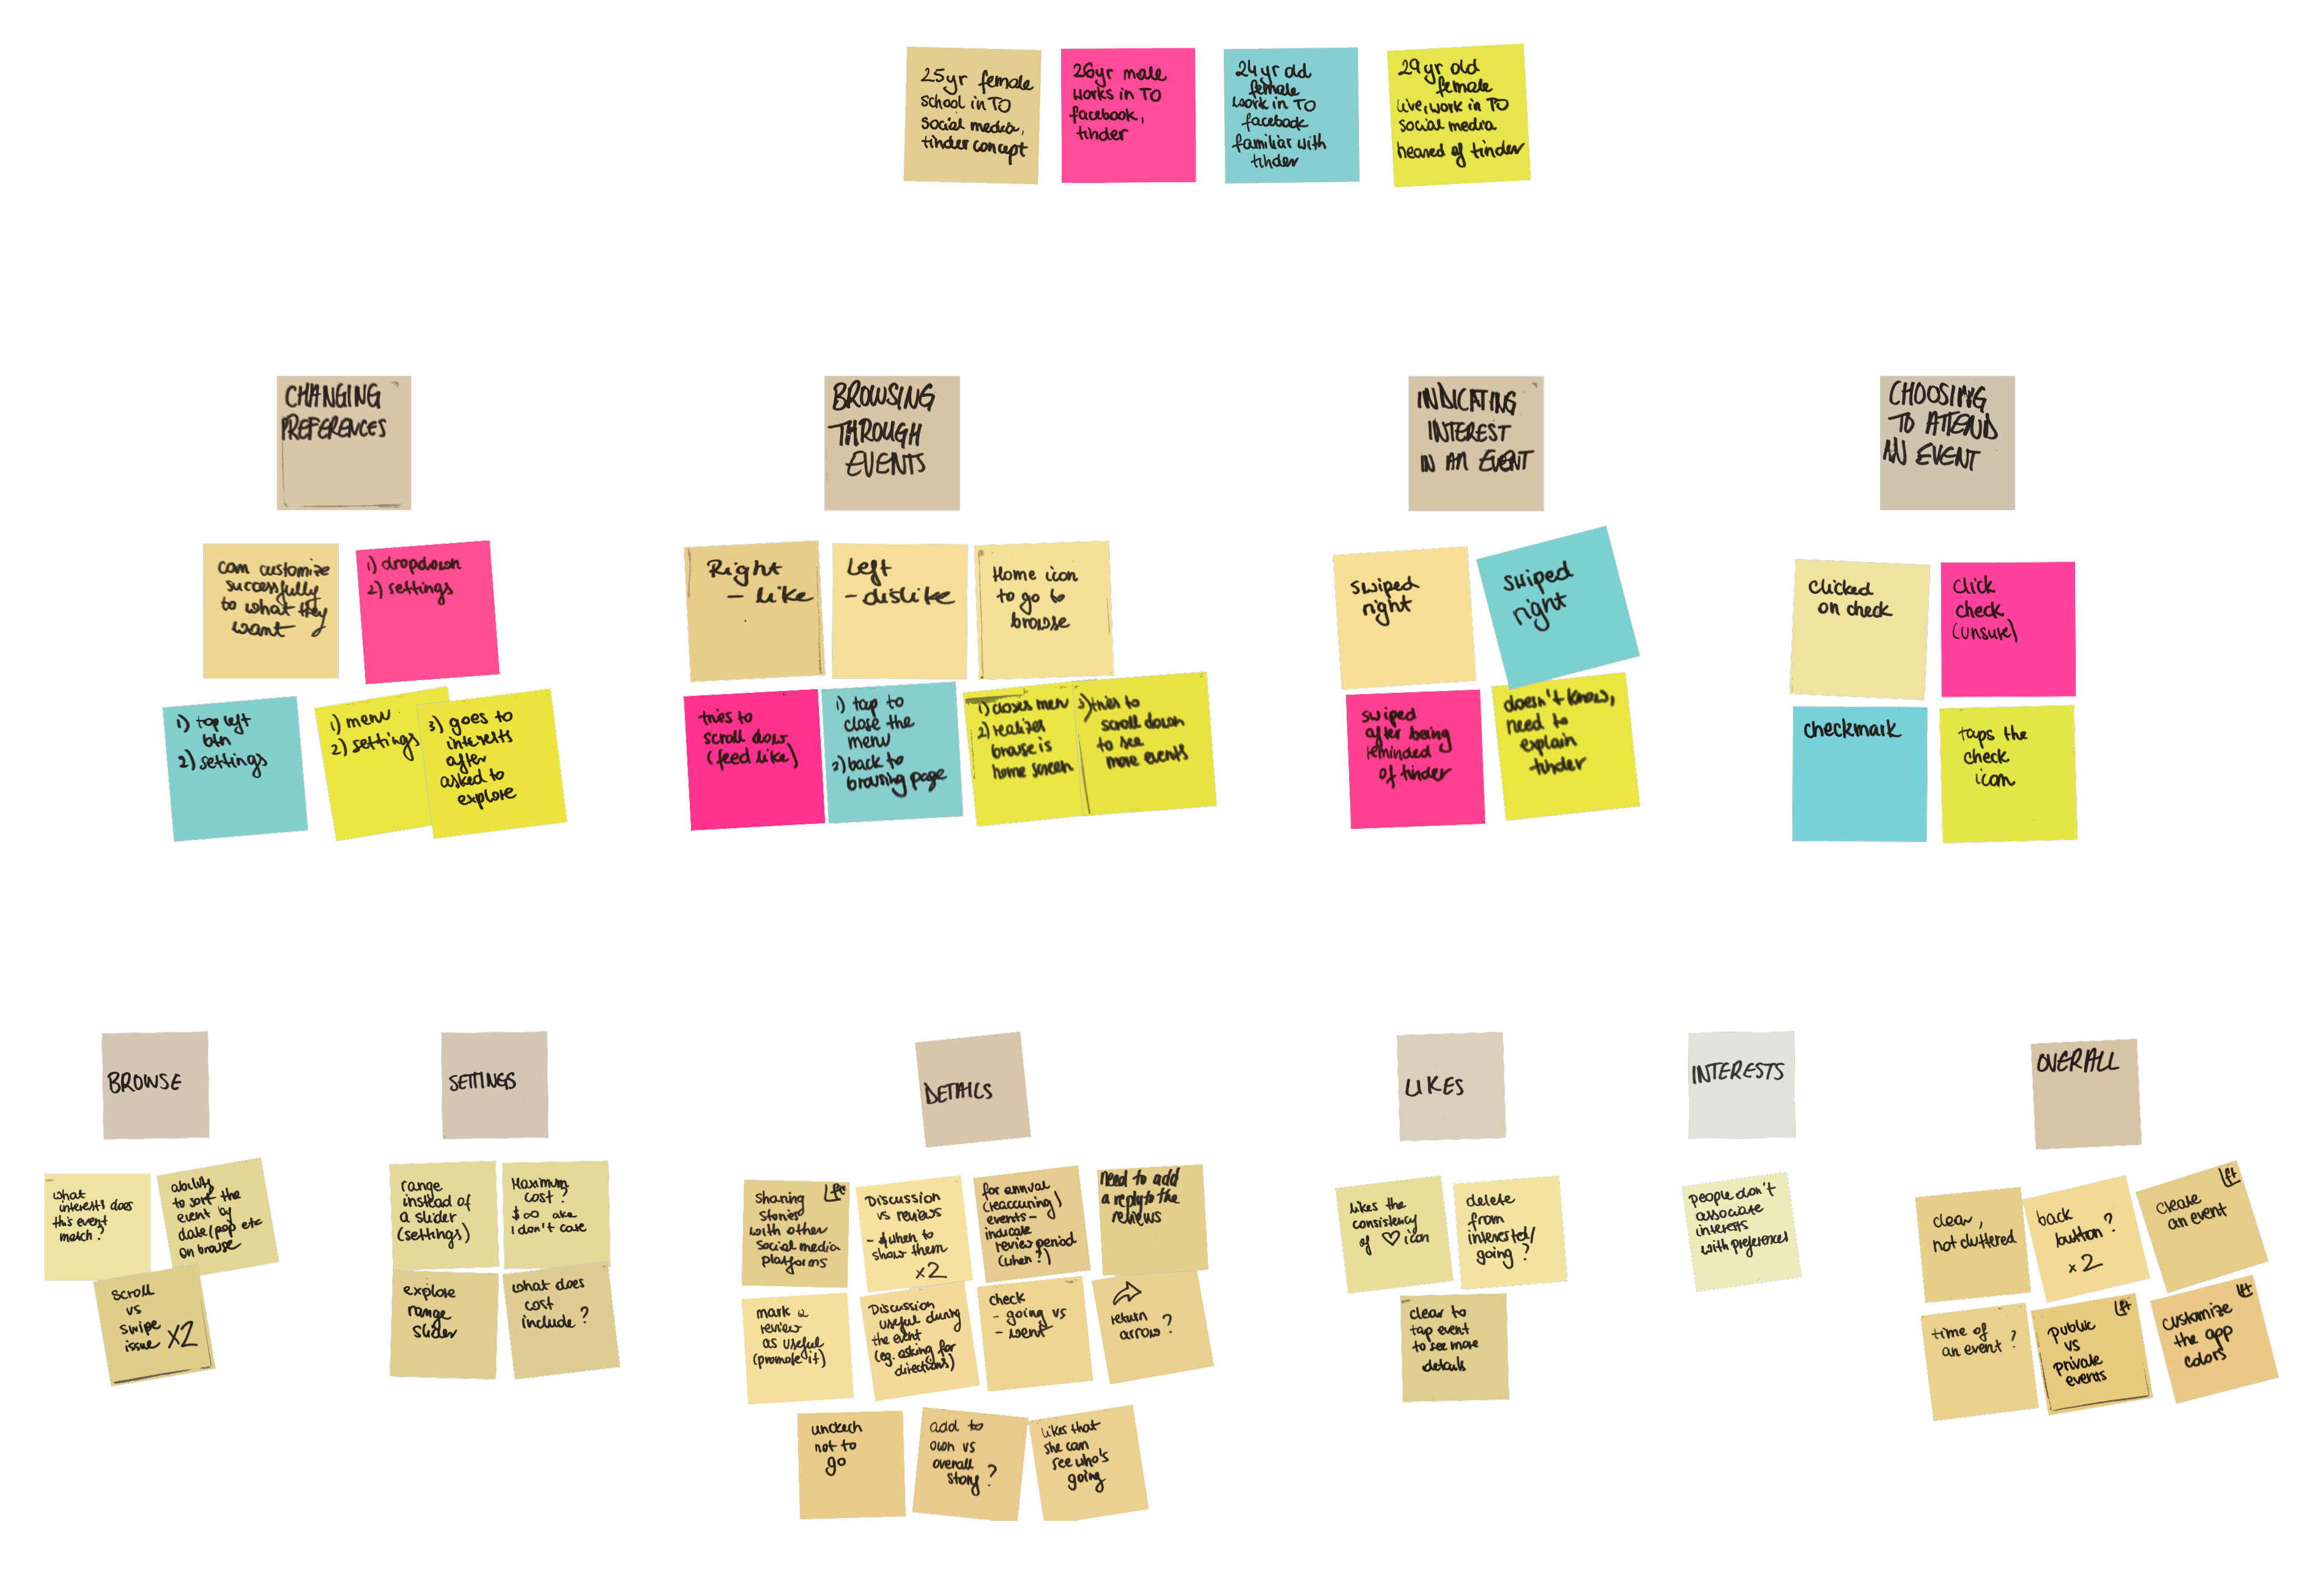 25yr female
school in TO
social media,
tinder concept
26yr male
works in TO
facebook,
tinder
24 yr old
female
work in TO
facebook
familiar with
tinder
29 yr old
female
live, work in TO
social media
heared of tinder
CHANGING
PREFERENCES
can customize
successfully
to what they
want
1) dropdown
2) settings
1) top left
btn
2) settings
1) menu
2) settings
3) goes to
interests
after
asked to
explore
BROWSING
THROUGH
EVENTS
Right
- like
Left
- dislike
Home icon
to go to
browse
tries to
scroll down
(feed like)
1) tap to
close the
menu
2) back to
browsing page
1) closes menu
2) realizes
browse is
home screen
3) tries to
scroll down
to see
more events
INDICATING
INTEREST
IN AN EVENT
swiped
right
swiped
right
swiped
after being
reminded
of tinder
doesn't know,
need to
explain
tinder
CHOOSING
TO ATTEND
AN EVENT
clicked
on check
click
check
(unsure)
checkmark
taps the
check
icon
BROWSE
what
interests does
this event
match?
ability
to sort the
event by
date/pop etc
on browse
scroll
vs
swipe
issue X2
SETTINGS
range
instead of
a slider
(settings)
Maximum
cost?
$∞ aka
I don't care
explore
range
slider
what does
cost
include?
DETAILS
sharing
stories
with other
social media
platforms
Discussion
vs reviews
- & when to
show them
x2
for annual
(reaccuring)
events -
indicate
review period
(when?)
need to add
a reply to the
reviews
mark a
review
as useful
(promote it)
Discussion
useful during
the event
(eg. asking for
directions)
check
- going vs
- went
return
arrow?
uncheck
not to
go
add to
own vs
overall
story?
likes that
she can
see who's
going
LIKES
likes the
consistency
of ♡ icon
delete
from
interested/
going?
clear to
tap event
to see more
details
INTERESTS
people don't
associate
interests
with preferences
OVERALL
clear,
not cluttered
back
button?
x2
create
an event
time of
an event?
public
vs
private
events
customize
the app
colors